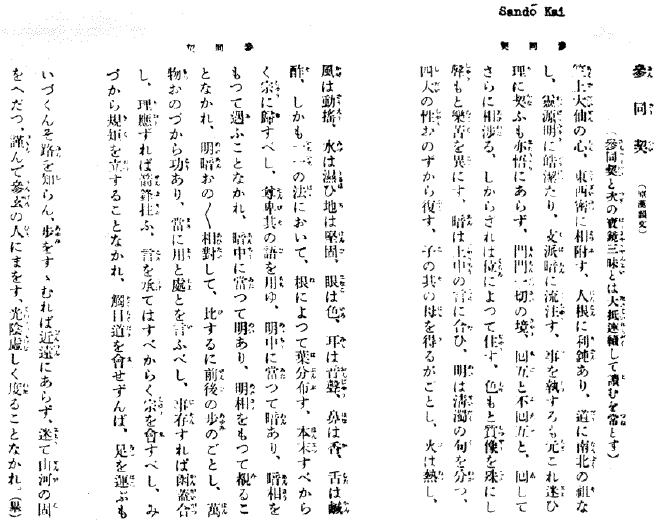 Sandō Kai
參同契
參同契(參同契と次の寶鏡三昧とは大抵連續して讀むを常とす)
竺土大仙の心、東西密に相附す、人根に利鈍あり、道に南北の祖な
し、靈源明に皓潔たり、支派暗に流注す、事を執するも元これ迷ひ
理に契ふも亦悟にあらず、門門一切の境、回互と不回互と、回して
さらに相渉る、しからざれば位によつて住す、色もと質像を殊にし
聲もと樂苦を異にす、暗は上中の言に合ひ、明は清濁の句を分つ、
四大の性おのずから復す、子の其の母を得るがごとし、火は熱し、
參同契
風は動搖、水は濕ひ地は堅固、眼は色、耳は音聲、鼻は香、舌は鹹
酢、しかも一一の法において、根によつて葉分布す、本末すべから
く宗に歸すべし、尊卑其の語を用ゆ、明中に當つて暗あり、暗相を
もつて遇ふことなかれ、暗中に當つて明あり、明相をもつて覩るこ
となかれ、明暗おの〳〵相對して、比するに前後の歩のごとし、萬
物おのづから功あり、當に用と處とを言ふべし、事存すれば函蓋合
し、理應ずれば箭鋒拄ふ、言を承てはすべからく宗を會すべし、み
づから規矩を立することなかれ、觸目道を會せずんば、足を運ぶも
いづくんぞ路を知らん、歩をすゝむれば近遠にあらず、迷て山河の固
をへだつ、謹んで參玄の人にまをす、光陰虚しく度ることなかれ。(畢)